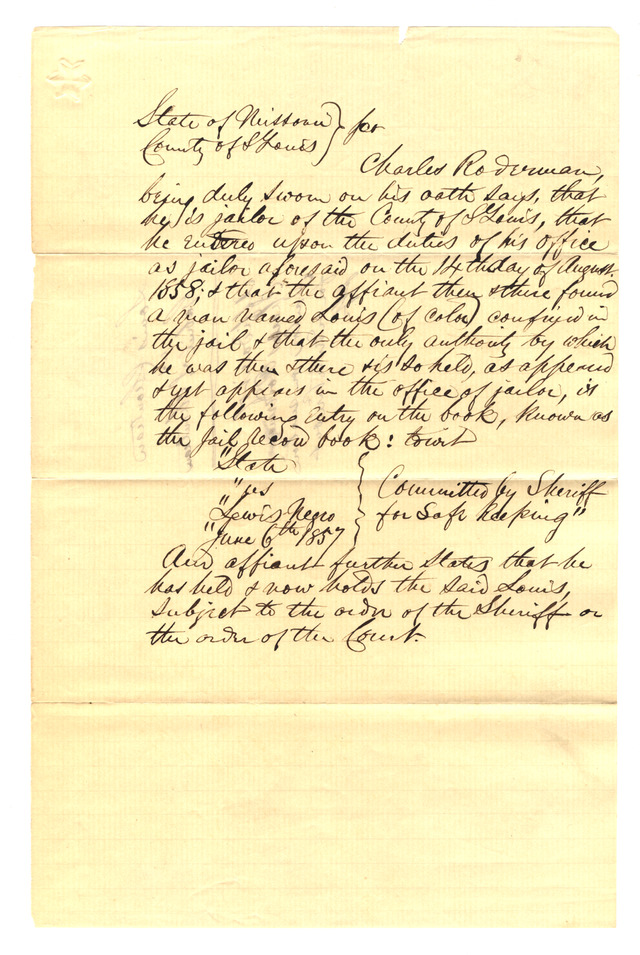 State of Missouri }
County of St Louis } ss
Charles Roderman,
being duly sworn on his oath says, that
he is jailor of the County of St Louis, that
he entered upon the duties of his office
as jailor aforesaid on the 14th day of August
1858; & that the affiant then & there found
a man named Louis (of color) confined in
the jail & that the only authority by which
he was then & there & is so held, as appeared
& yet appears in the office of jailor, is
the following entry on the book, known as
the Jail record book: towit
"State
"vs
"Lewis Negro
"June 6th 1857
} Committed by Sheriff
for Safe Keeping"
And affiant further states that he
has held & now holds the said Louis,
subject to the order of the Sheriff or
the order of the Court.